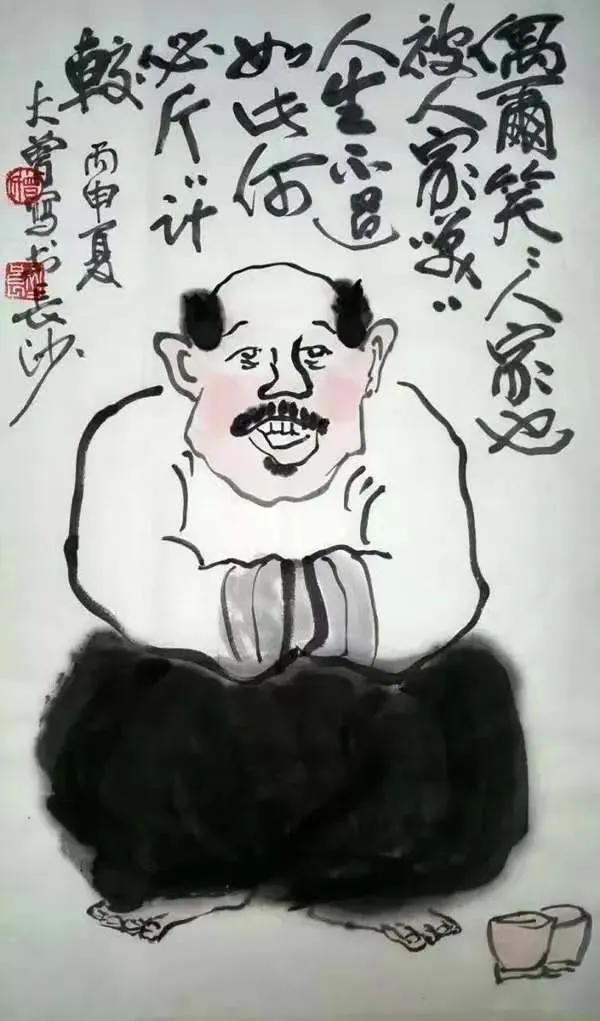 偶爾笑〻人家也
被人家笑〻
人生不過
如此何
必斤〻計
較
丙申夏
大曾寫於長沙